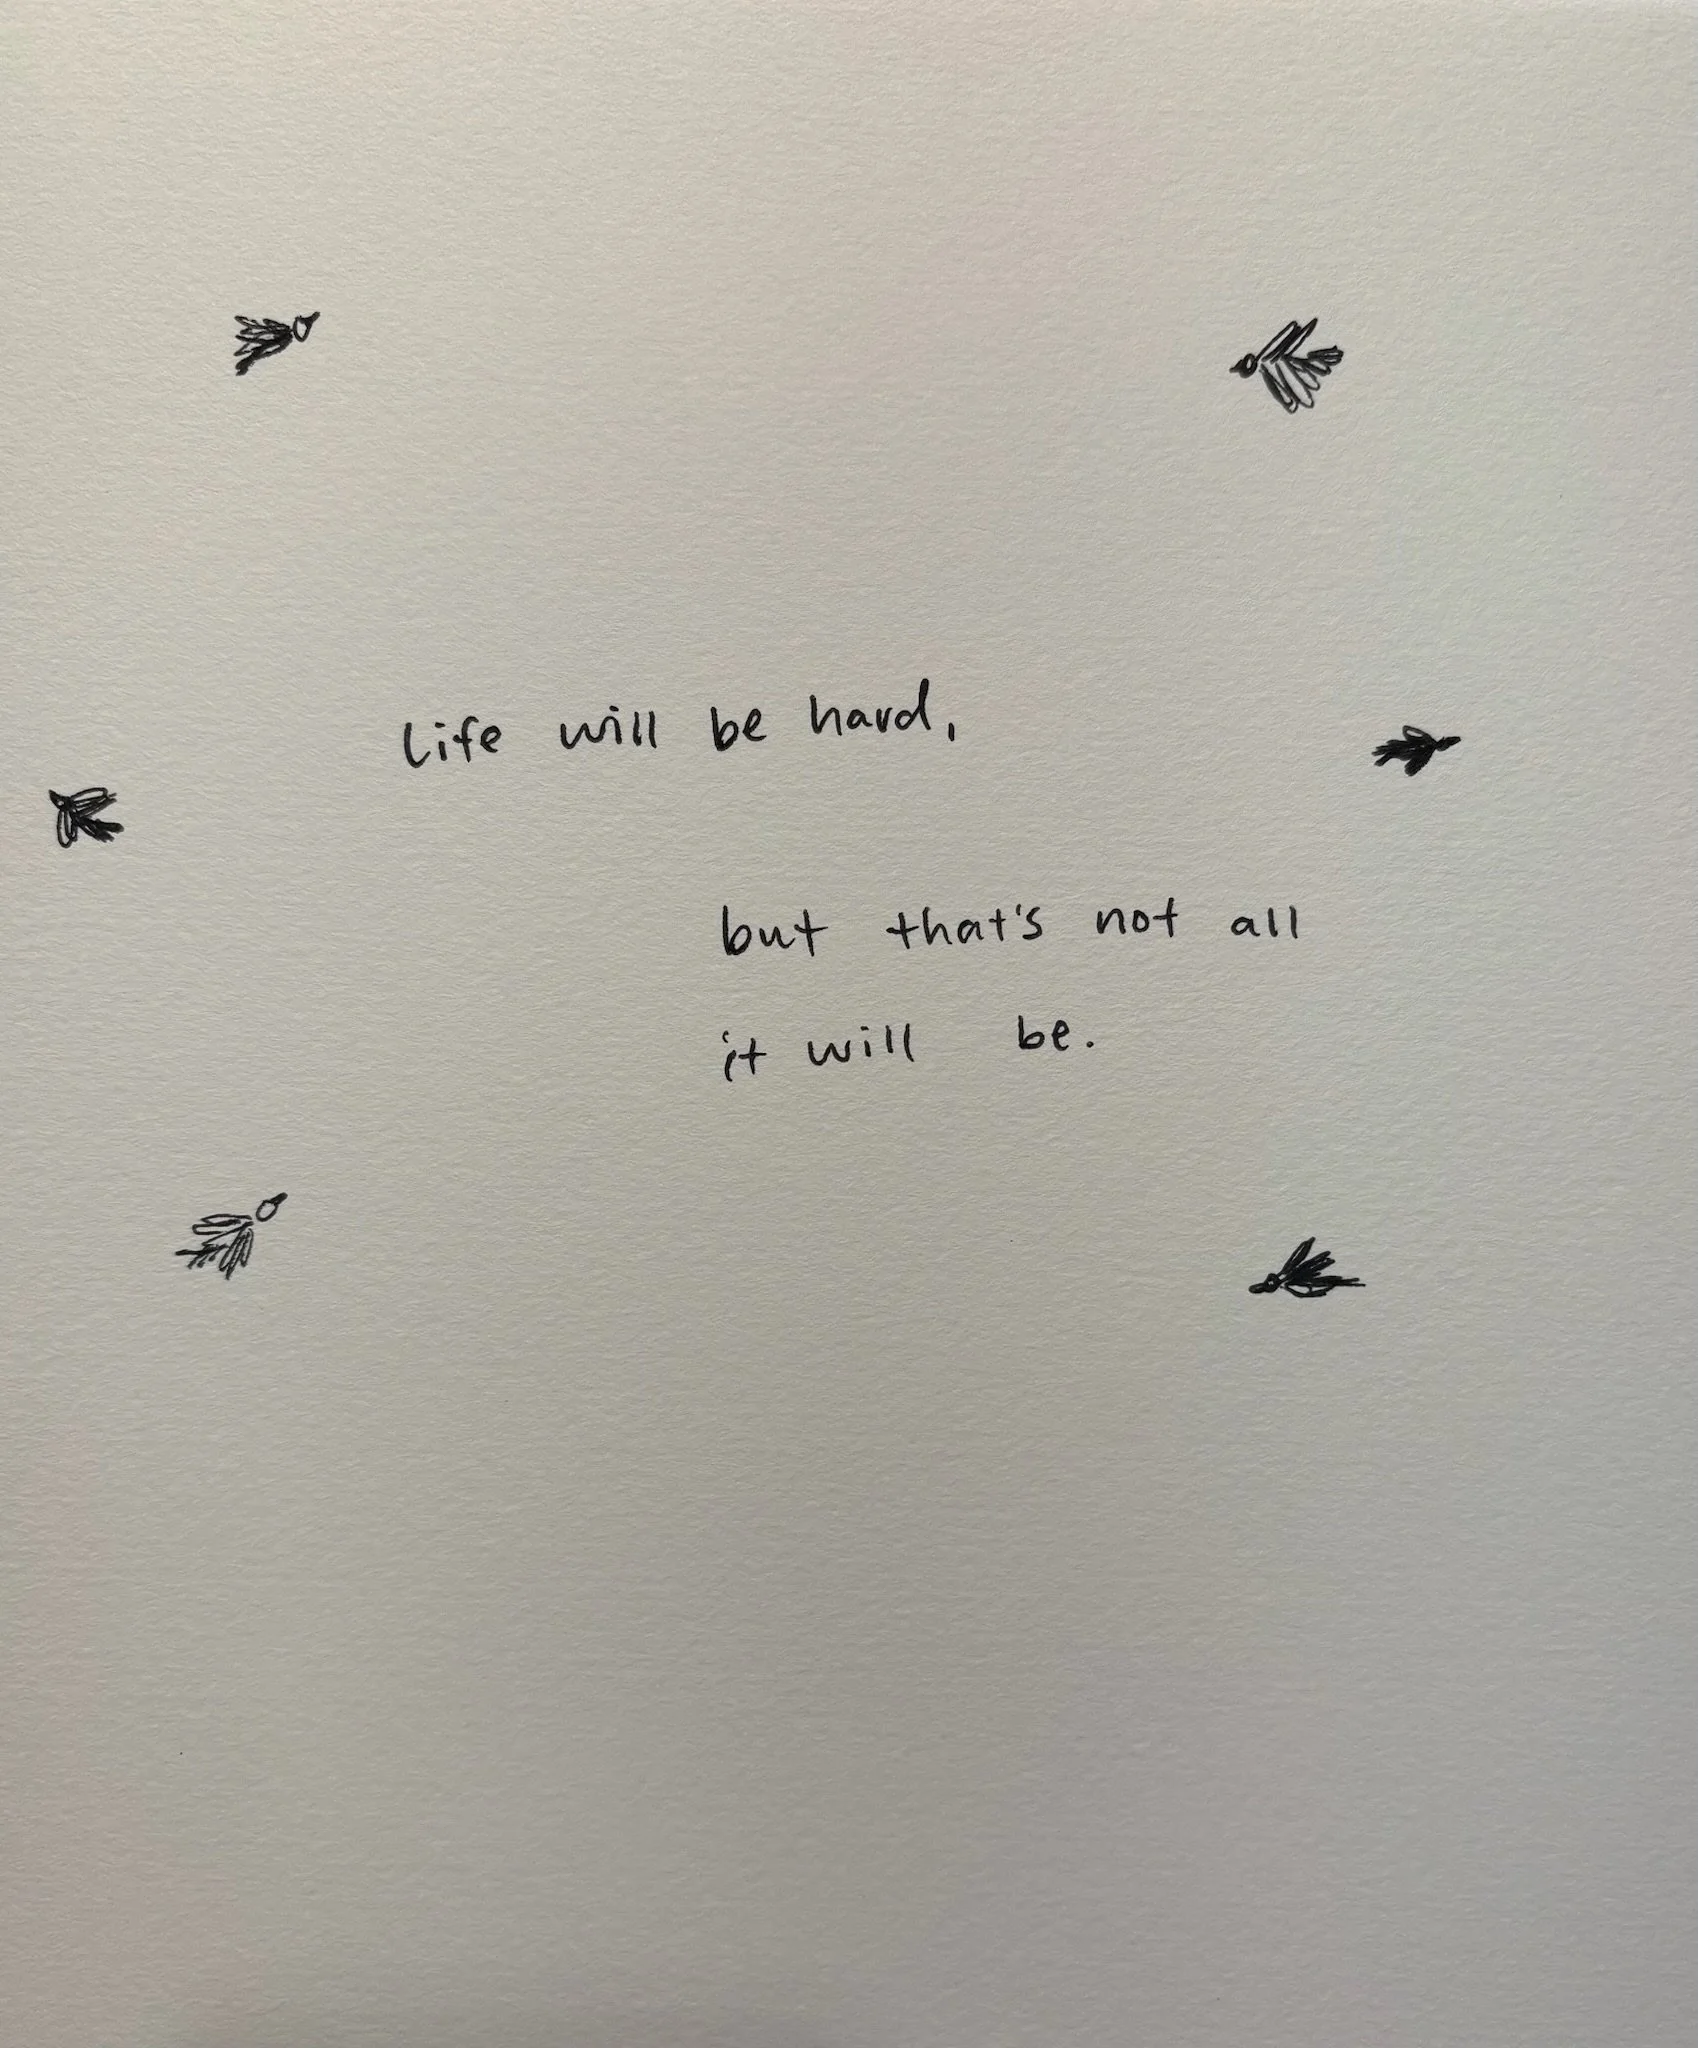 Life will be hard,
but that's not all
it will be.